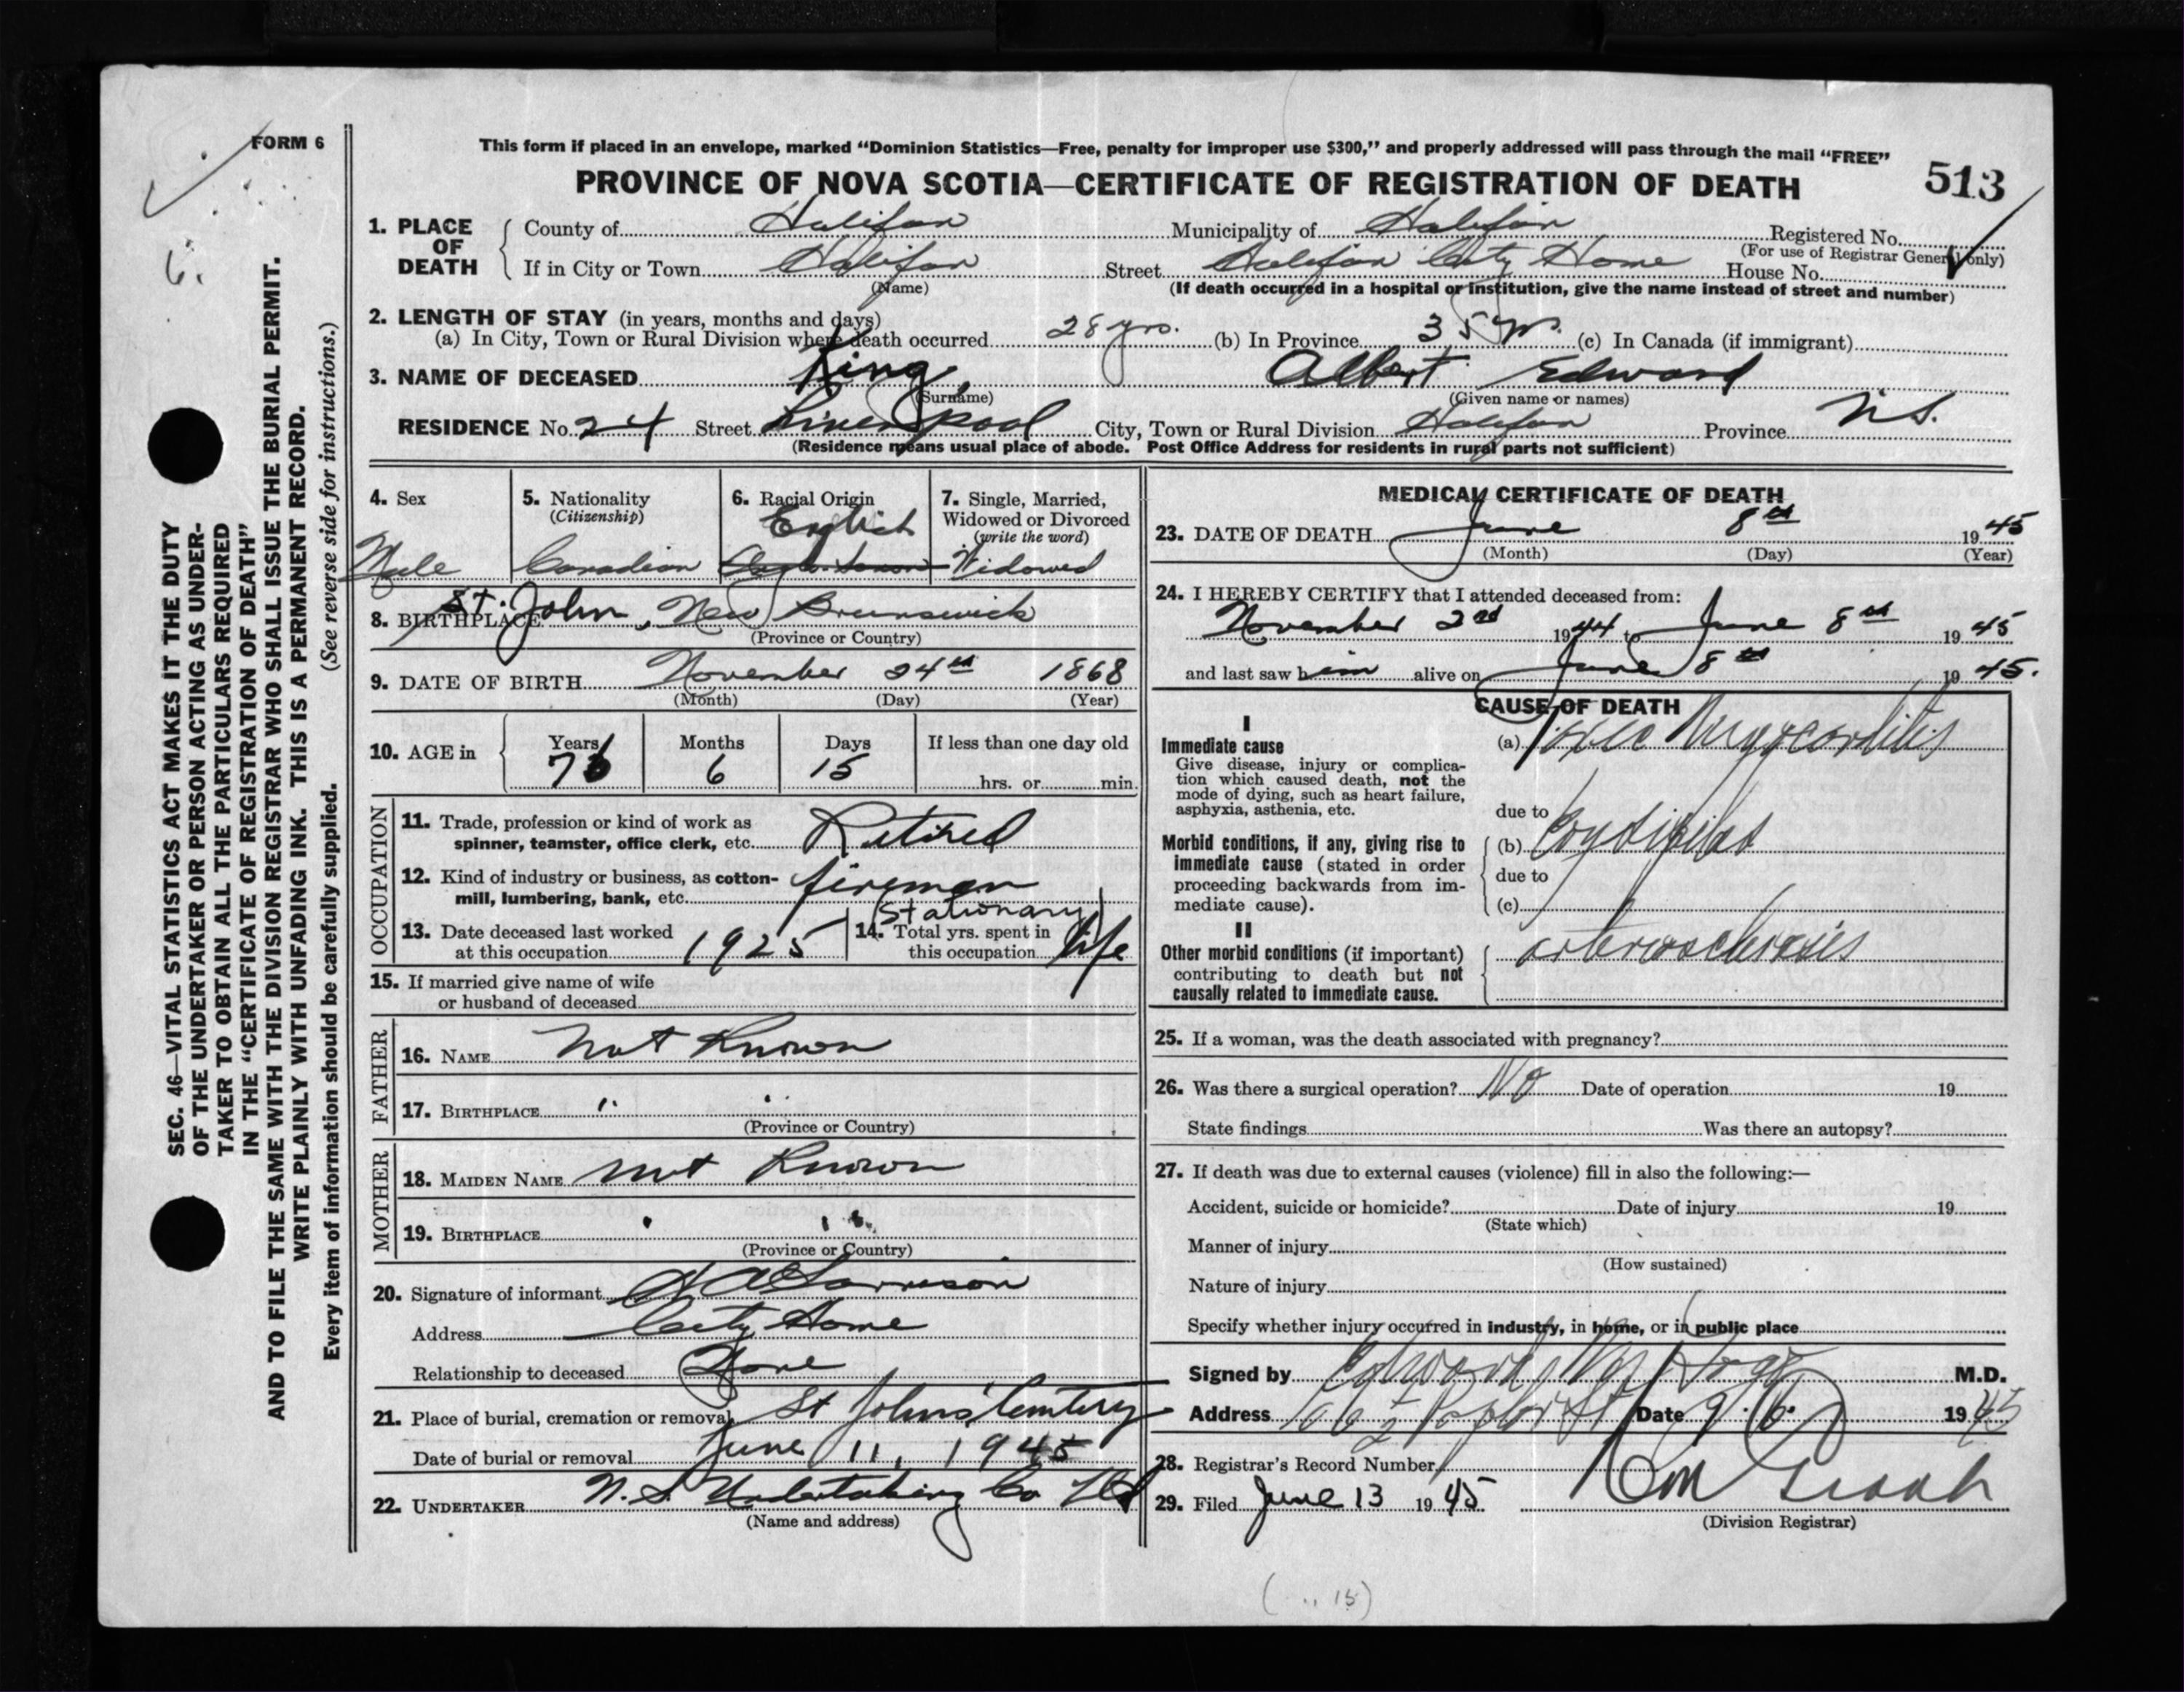 FORM 6
This form if placed in an envelope, marked “Dominion Statistics—Free, penalty for improper use $300,” and properly addressed will pass through the mail “FREE”
PROVINCE OF NOVA SCOTIA—CERTIFICATE OF REGISTRATION OF DEATH
513
1. PLACE OF DEATH
County of Halifax Municipality of Halifax Registered No.
(For use of Registrar General only)
If in City or Town Halifax Street Halifax City Home House No.
(Name) (If death occurred in a hospital or institution, give the name instead of street and number)
2. LENGTH OF STAY (in years, months and days)
(a) In City, Town or Rural Division where death occurred 28 yrs. (b) In Province 35 yrs. (c) In Canada (if immigrant)
3. NAME OF DECEASED King, Albert Edward
(Surname) (Given name or names)
RESIDENCE No. 24 Street Liverpool City, Town or Rural Division Halifax Province N.S.
(Residence means usual place of abode. Post Office Address for residents in rural parts not sufficient)
4. Sex
Male
5. Nationality
(Citizenship)
Canadian
6. Racial Origin
English
Anglo-Saxon
7. Single, Married,
Widowed or Divorced
(write the word)
Widowed
8. BIRTHPLACE St. John, New Brunswick
(Province or Country)
9. DATE OF BIRTH November 24th 1868
(Month) (Day) (Year)
10. AGE in
Years Months Days If less than one day old
76 6 15 hrs. or min.
OCCUPATION
11. Trade, profession or kind of work as
spinner, teamster, office clerk, etc. Retired
12. Kind of industry or business, as cotton-
mill, lumbering, bank, etc. fireman
(Stationary)
13. Date deceased last worked
at this occupation 1925
14. Total yrs. spent in
this occupation life
15. If married give name of wife
or husband of deceased
FATHER
16. NAME Not Known
17. BIRTHPLACE " "
(Province or Country)
MOTHER
18. MAIDEN NAME not Known
19. BIRTHPLACE " "
(Province or Country)
20. Signature of informant
Address City Home
Relationship to deceased None
21. Place of burial, cremation or removal St John's Cemtery
Date of burial or removal June 11, 1945
22. UNDERTAKER N.S. Undertaking Co Ltd
(Name and address)
MEDICAL CERTIFICATE OF DEATH
23. DATE OF DEATH June 8th 1945
(Month) (Day) (Year)
24. I HEREBY CERTIFY that I attended deceased from:
November 2nd 1944 to June 8th 1945
and last saw him alive on June 8th 1945.
CAUSE OF DEATH
I
Immediate cause
Give disease, injury or complica-
tion which caused death, not the
mode of dying, such as heart failure,
asphyxia, asthenia, etc.
(a) Toxic Myocarditis
due to
Morbid conditions, if any, giving rise to
immediate cause (stated in order
proceeding backwards from im-
mediate cause).
(b)
due to
(c)
II
Other morbid conditions (if important)
contributing to death but not
causally related to immediate cause.
arteriosclerosis
25. If a woman, was the death associated with pregnancy?
26. Was there a surgical operation? No Date of operation 19
State findings Was there an autopsy?
27. If death was due to external causes (violence) fill in also the following:—
Accident, suicide or homicide? Date of injury 19
(State which)
Manner of injury
(How sustained)
Nature of injury
Specify whether injury occurred in industry, in home, or in public place
Signed by M.D.
Address Date 9.6. 1945
28. Registrar's Record Number
29. Filed June 13 1945
(Division Registrar)
SEC. 46—VITAL STATISTICS ACT MAKES IT THE DUTY
OF THE UNDERTAKER OR PERSON ACTING AS UNDER-
TAKER TO OBTAIN ALL THE PARTICULARS REQUIRED
IN THE “CERTIFICATE OF REGISTRATION OF DEATH”
AND TO FILE THE SAME WITH THE DIVISION REGISTRAR WHO SHALL ISSUE THE BURIAL PERMIT.
WRITE PLAINLY WITH UNFADING INK. THIS IS A PERMANENT RECORD.
Every item of information should be carefully supplied. (See reverse side for instructions.)